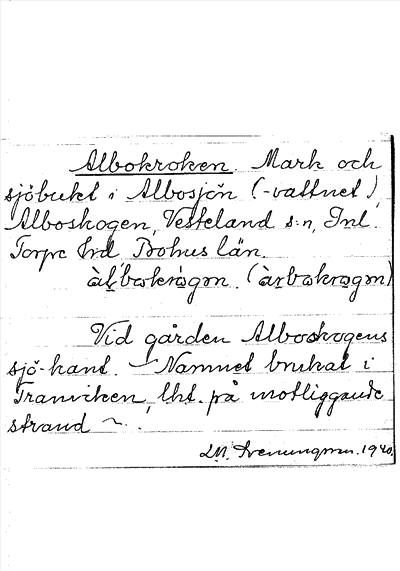 Albokroken. Mark och
sjöbukt i Albosjön (-vattnet),
Alboskogen, Vesteland s:n, Inl.
Torpe hrd Bohus län.
àĺbωkrògən. (àrbωkrogən)
Vid gården Alboskogens
sjö-kant. – Namnet brukat i
Tranviken, lht. på motliggande
strand ~.
1940.